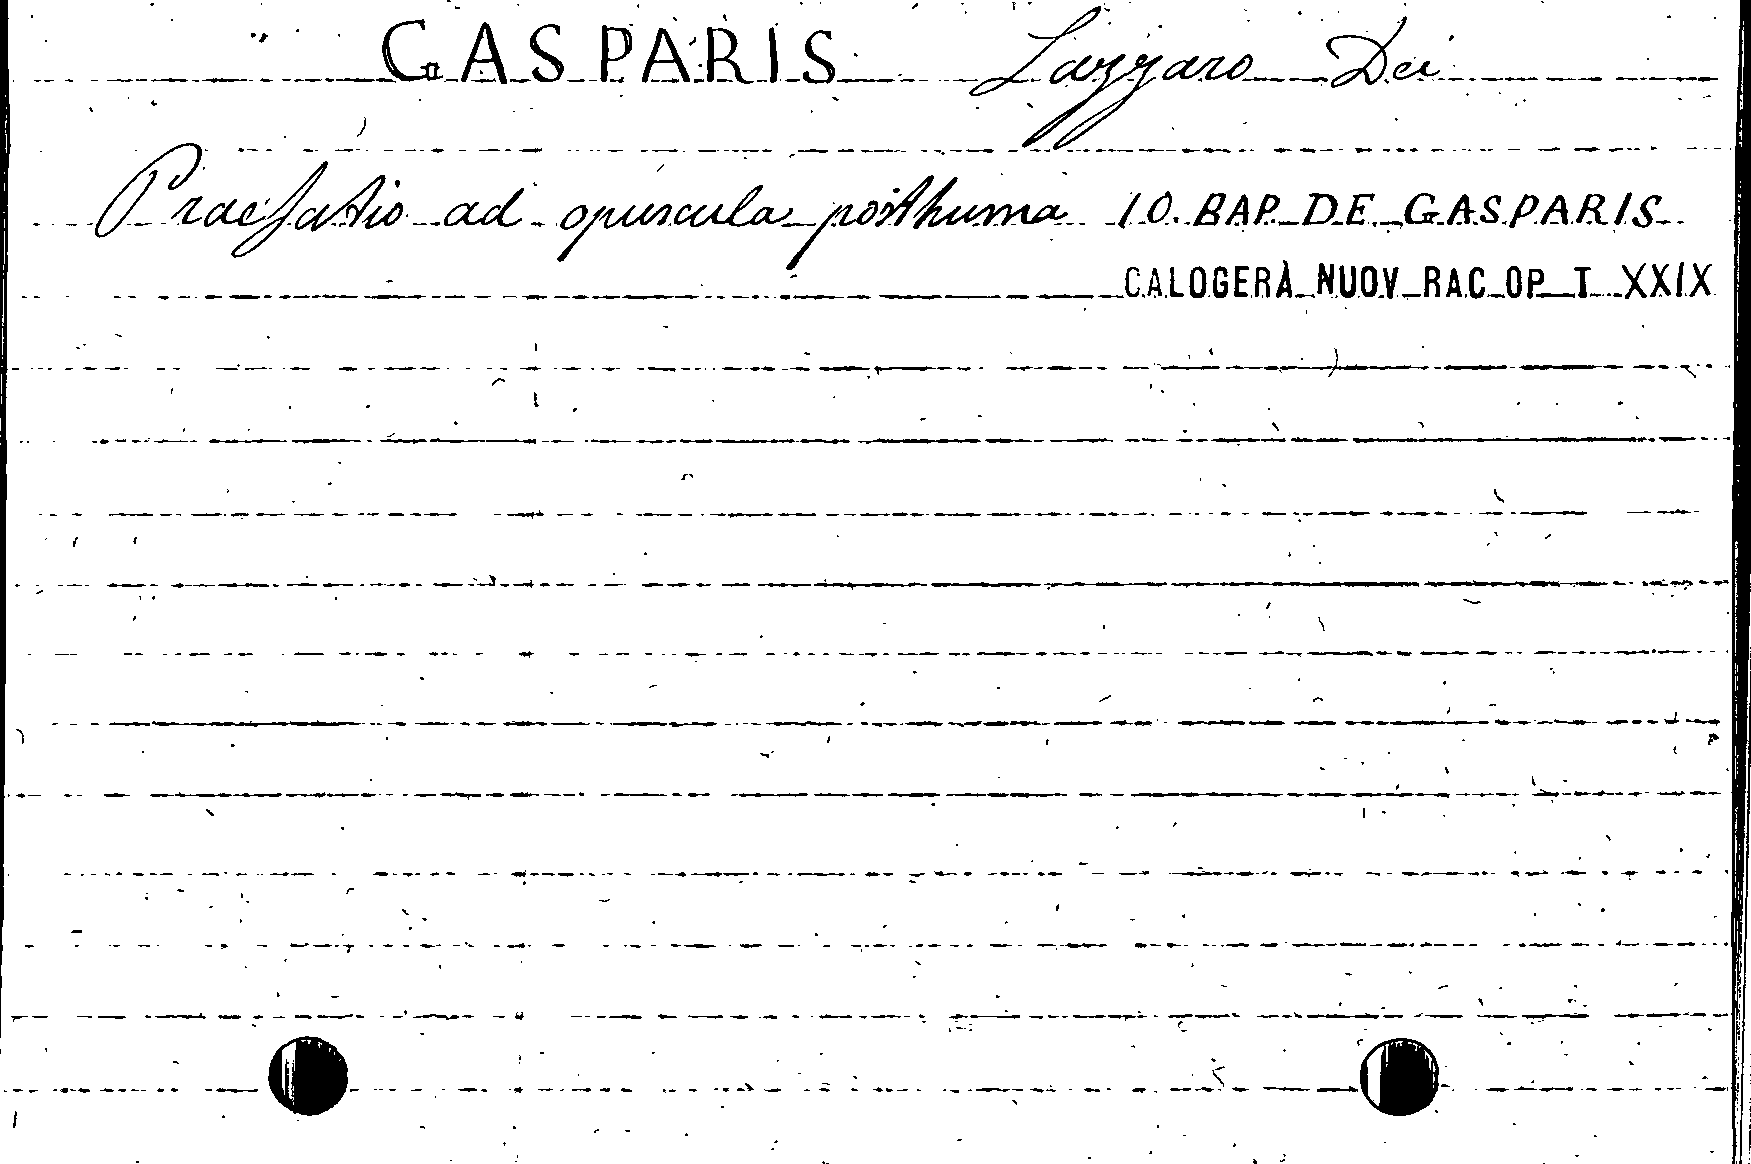 GASPARIS Lazzaro Dei
Praefatio ad opuscula posthuma IO. BAP. DE GASPARIS
CALOGERÀ NUOV RAC OP T XXIX